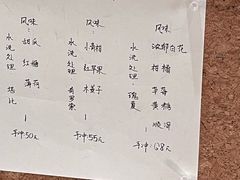 风味：
甜瓜
红糖
薄荷
水洗处理
瑰比
手冲50元
风味：
小青柑
红苹果
木黄子
水洗处理
手冲55元
风味：
浓郁白花
柑橘
草莓
黄糖
顺滑
水洗处理
瑰夏
手冲68元